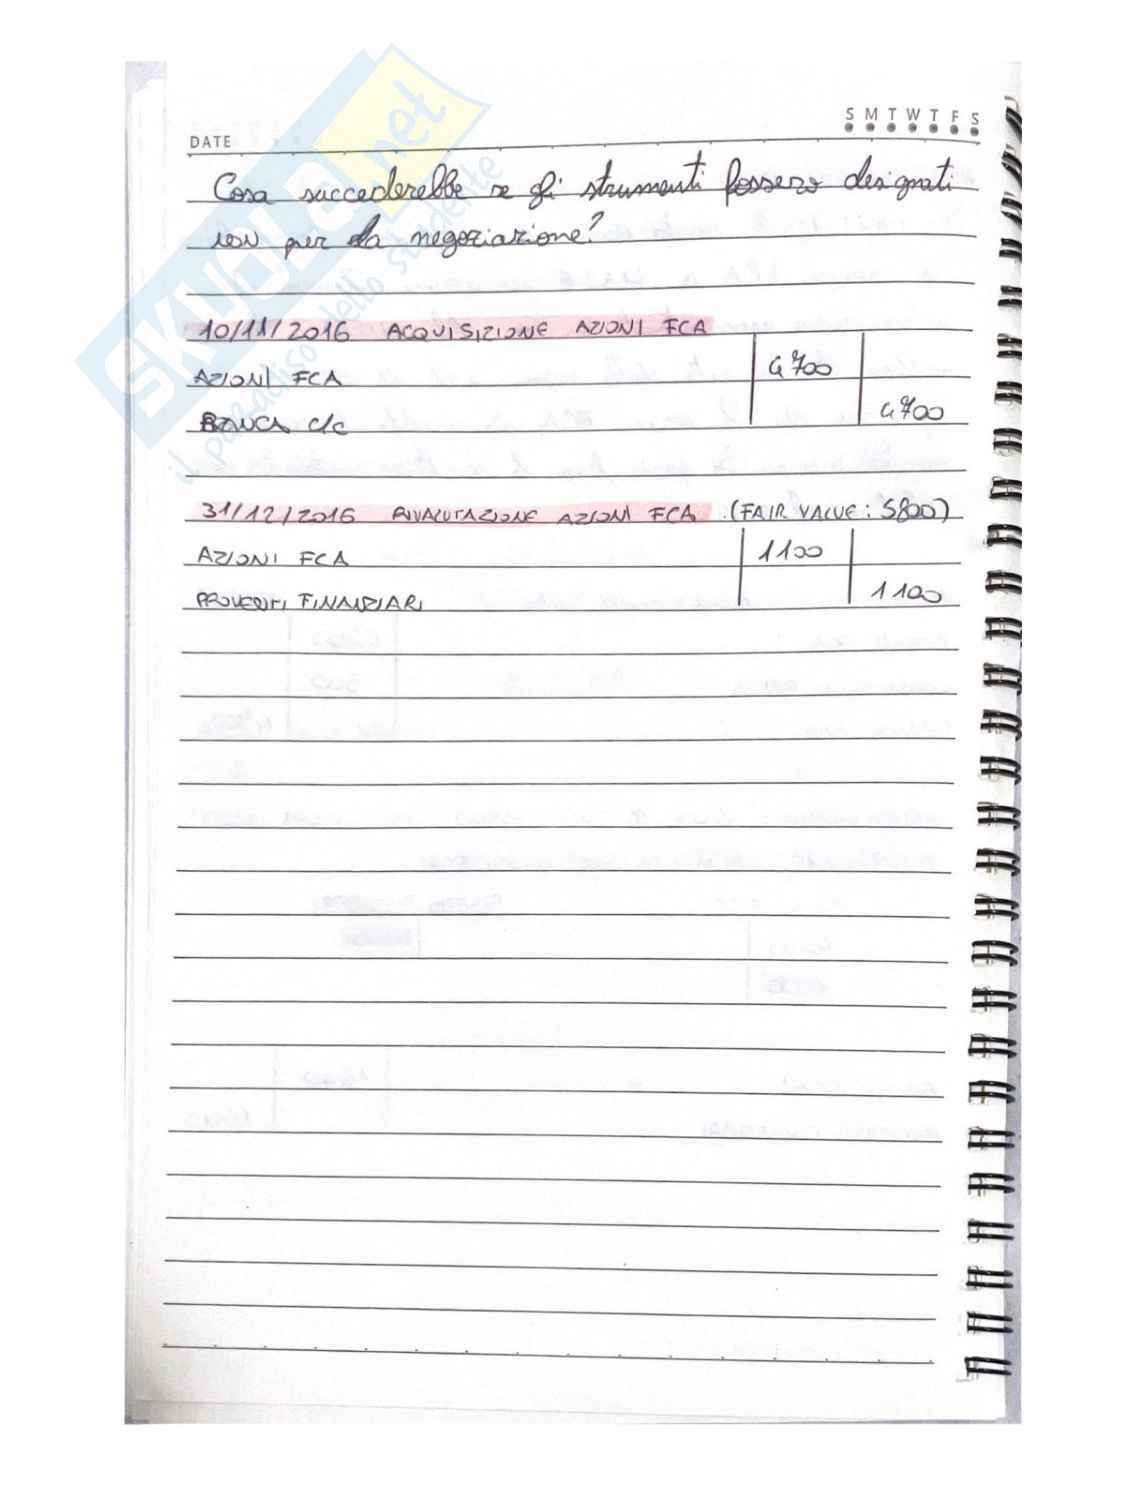 SKUOLA.net
il paradiso dello studente
S M T W T F S
DATE
Cosa succederebbe se gli strumenti fossero designati
non per la negoziazione?
10/11/2016 ACQUISIZIONE AZIONI FCA
AZIONI FCA 4700
BANCA c/c 4700
31/12/2016 RIVALUTAZIONE AZIONI FCA (FAIR VALUE: 5800)
AZIONI FCA 1100
PROVENTI FINANZIARI 1100